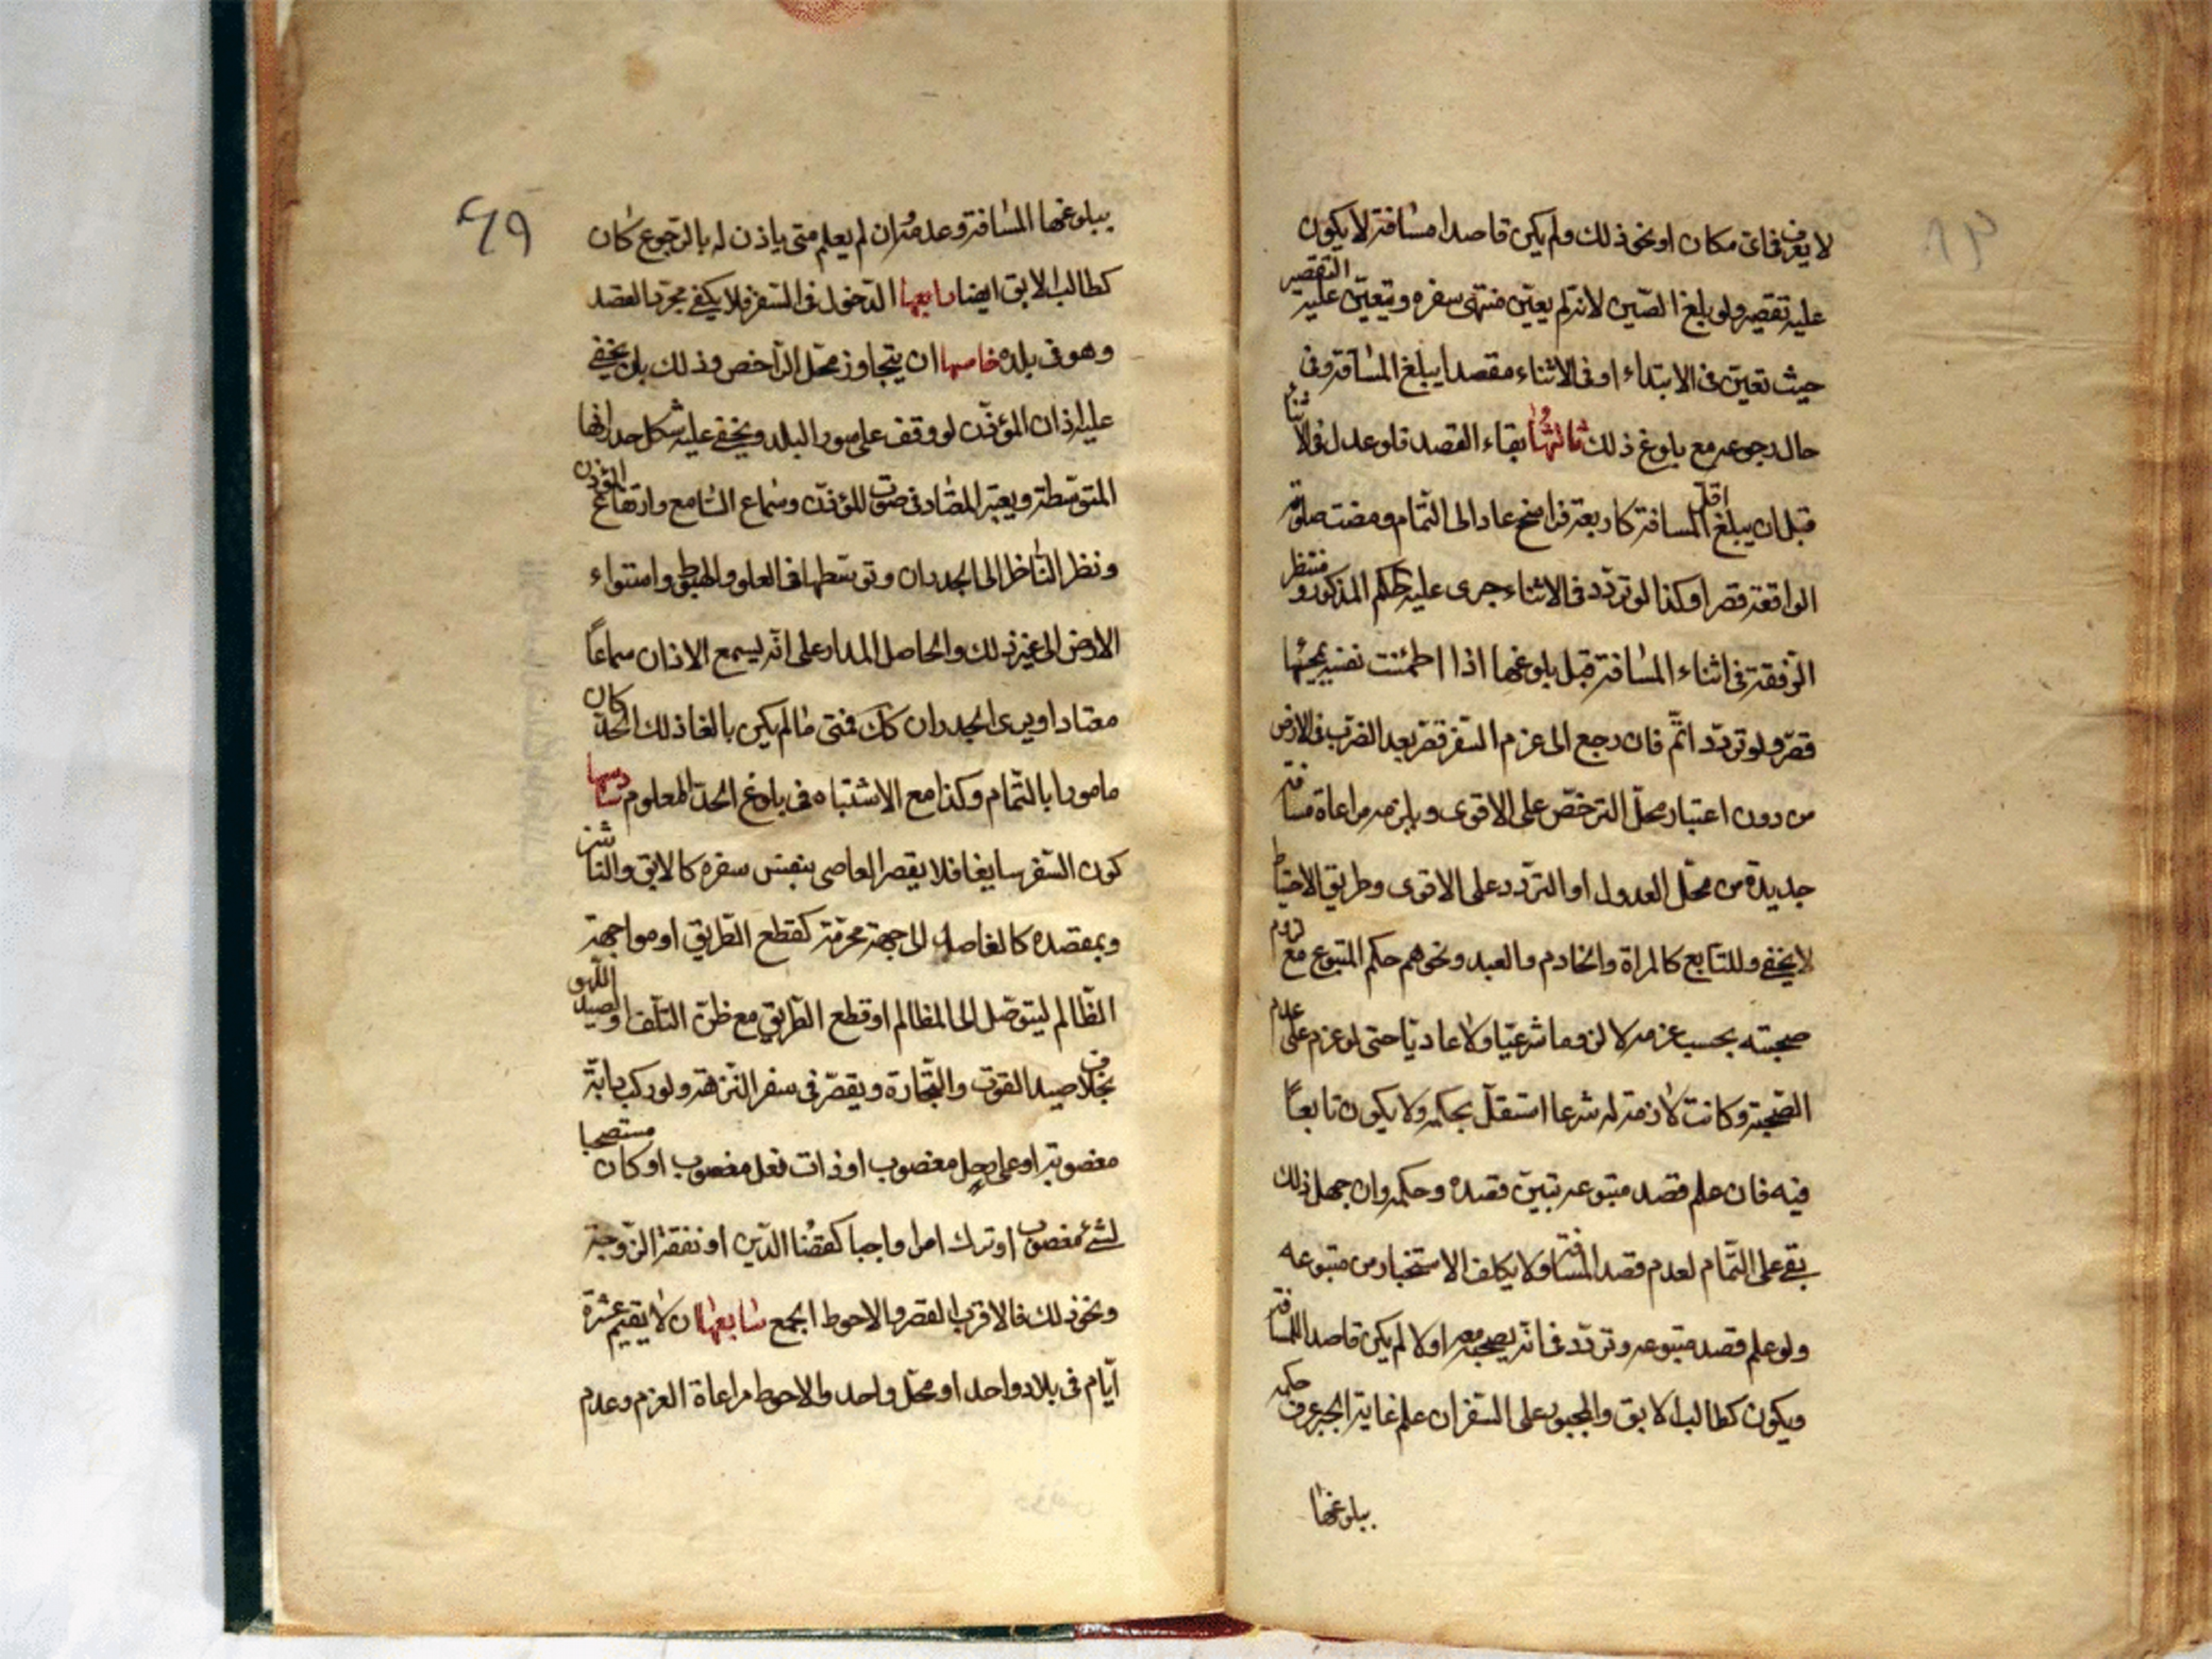 لا يعرف فى اى مكان او نحو ذلك ولم يكن قاصدا مسافة لا يكون
عليه تقصير ولو بلغ الصّين لانه لم يعيّن منتهى سفره ويتعيّن عليه التقصير
حيث تعيّن فى الابتداء او فى الاثناء مقصدا يبلغ المسافة وفى
حال رجوعه مع بلوغ ذلك ثالثها بقاء القصد فلو عدل فى الاثناء
قبل ان يبلغ اقل المسافة كاربعة فراسخ عاد الى التّمام ومضت صلوته
الواقعة قصرا وكذا لو تردّد فى الاثناء جرى عليه حكم المذكور ومنتظر
الرّفقة فى اثناء المسافة قبل بلوغها اذا اطمئنت نفسه بمجيئها
قصّر ولو تردّد اتمّ فان رجع الى عزم السّفر قصّر بعد الضرب فى الارض
من دون اعتبار محلّ الترخّص على الاقوى ويلزمه مراعاة مسافة
جديدة من محلّ العدول او التردّد على الاقوى وطريق الاحتياط
لا يخفى وللتابع كالمراة والخادم والعبد ونحوهم حكم المتبوع مع لزوم
صحبته بحسب عزمه لا لزوما شرعيّا ولا عاديّا حتى لو عزم على عدم
الصّحبة وكانت لازمة له شرعا استقلّ بحكمه ولا يكون تابعًا
فيه فان علم قصد متبوعه تبيّن قصده وحكمه وان جهل ذلك
بقى على التّمام لعدم قصد المسافة ولا يكلف الاستخبار من متبوعه
ولو علم قصد متبوعه وتردّد فى انّه يصحبه او لا لم يكن قاصدا للمسافة
ويكون كطالب الابق والمجبور على السّفر ان علم غاية الجبر عرف حكمه
ببلوغها
٦٩
ببلوغها المسافة وعدمه وان لم يعلم متى ياذن له بالرّجوع كان
كطالب الابق ايضا رابعها الدّخول فى السّفر فلا يكفى مجرّد القصد
وهو فى بلده خامسها ان يتجاوز محلّ التّرخص وذلك بان يخفى
عليه اذان المؤذّن لو وقف على سور البلد ويخفى عليه شكل جدرانها
المتوسّطة ويعتبر المعتاد فى صوت المؤذّن وسماع السّامع وارتفاع المؤذن
ونظر النّاظر الى الجدران وتوسّطها فى العلو والهبوط واستواء
الارض الى غير ذلك والحاصل المدار على انّه يسمع الاذان سماعًا
معتادا او يرى الجدران كك فمتى ما لم يكن بالغا ذلك الحدّ كان
مامورا بالتّمام وكذا مع الاشتباه فى بلوغ الحدّ المعلوم سادسها
كون السّفر سايغا فلا يقصر العاصى بنفس سفره كالابق والناشز
وبمقصده كالقاصد الى جهة محرّمة كقطع الطّريق او مواجهة
الظّالم ليتوصّل الى المظالم او قطع الطّريق مع ظنّ التّلف او صيد اللّهو
بخلاف صيد القوت والتّجارة ويقصّر فى سفر النّزهة ولو ركب دابّة
مغصوبة او على رحل مغصوب او ذات نعل مغصوب او كان مستصحبا
لشئ مغصوب او ترك امرا واجبا كقضاء الدّين او نفقة الزّوجة
ونحو ذلك فالاقرب القصر والاحوط الجمع سابعها ان لا يقيم عشرة
ايّام فى بلاد واحد او محلّ واحد والاحوط مراعاة العزم وعدم